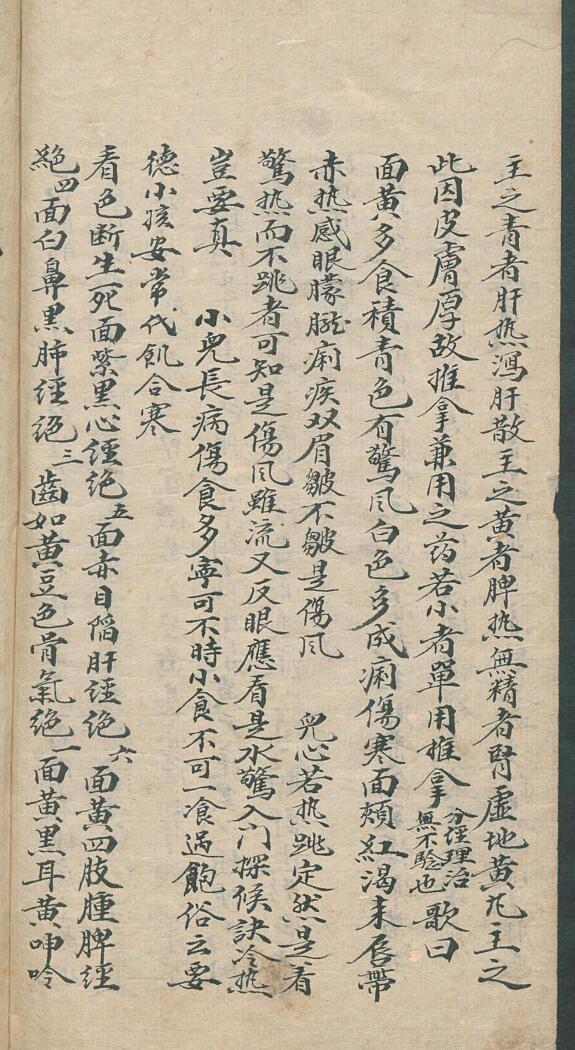 主之青者肝热瀉肝散主之黄者脾热無精者腎虛地黄凢主之
此因皮膚厚故推拿兼用之药若小者單用推拿分經理治無不驗也歌曰
面黄多食積青色有驚風白色多成痢傷寒面頬紅渴来唇帶
赤热感眼朦朧痢疾双眉皺不皺是傷風 兒心若热跳定然是着
驚热而不跳者可知是傷風雖流又反眼應看是水驚入门探候訣冷热
豈要真 小兒長病傷食多寧可不時小食不可一飡過飽俗云要
德小孩安常代飢合寒
看色断生死面紫黑心經绝五面赤目陷肝經绝六面黄四肢腫脾經
絕四面白鼻黑肺經绝三齒如黄豆色骨氣绝一面黄黑耳黄呻吟